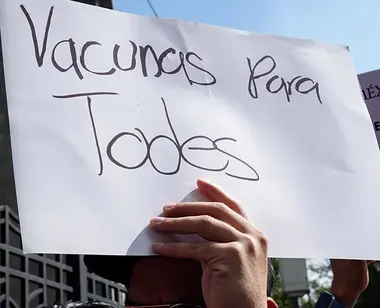 Vacunas Para
Todes